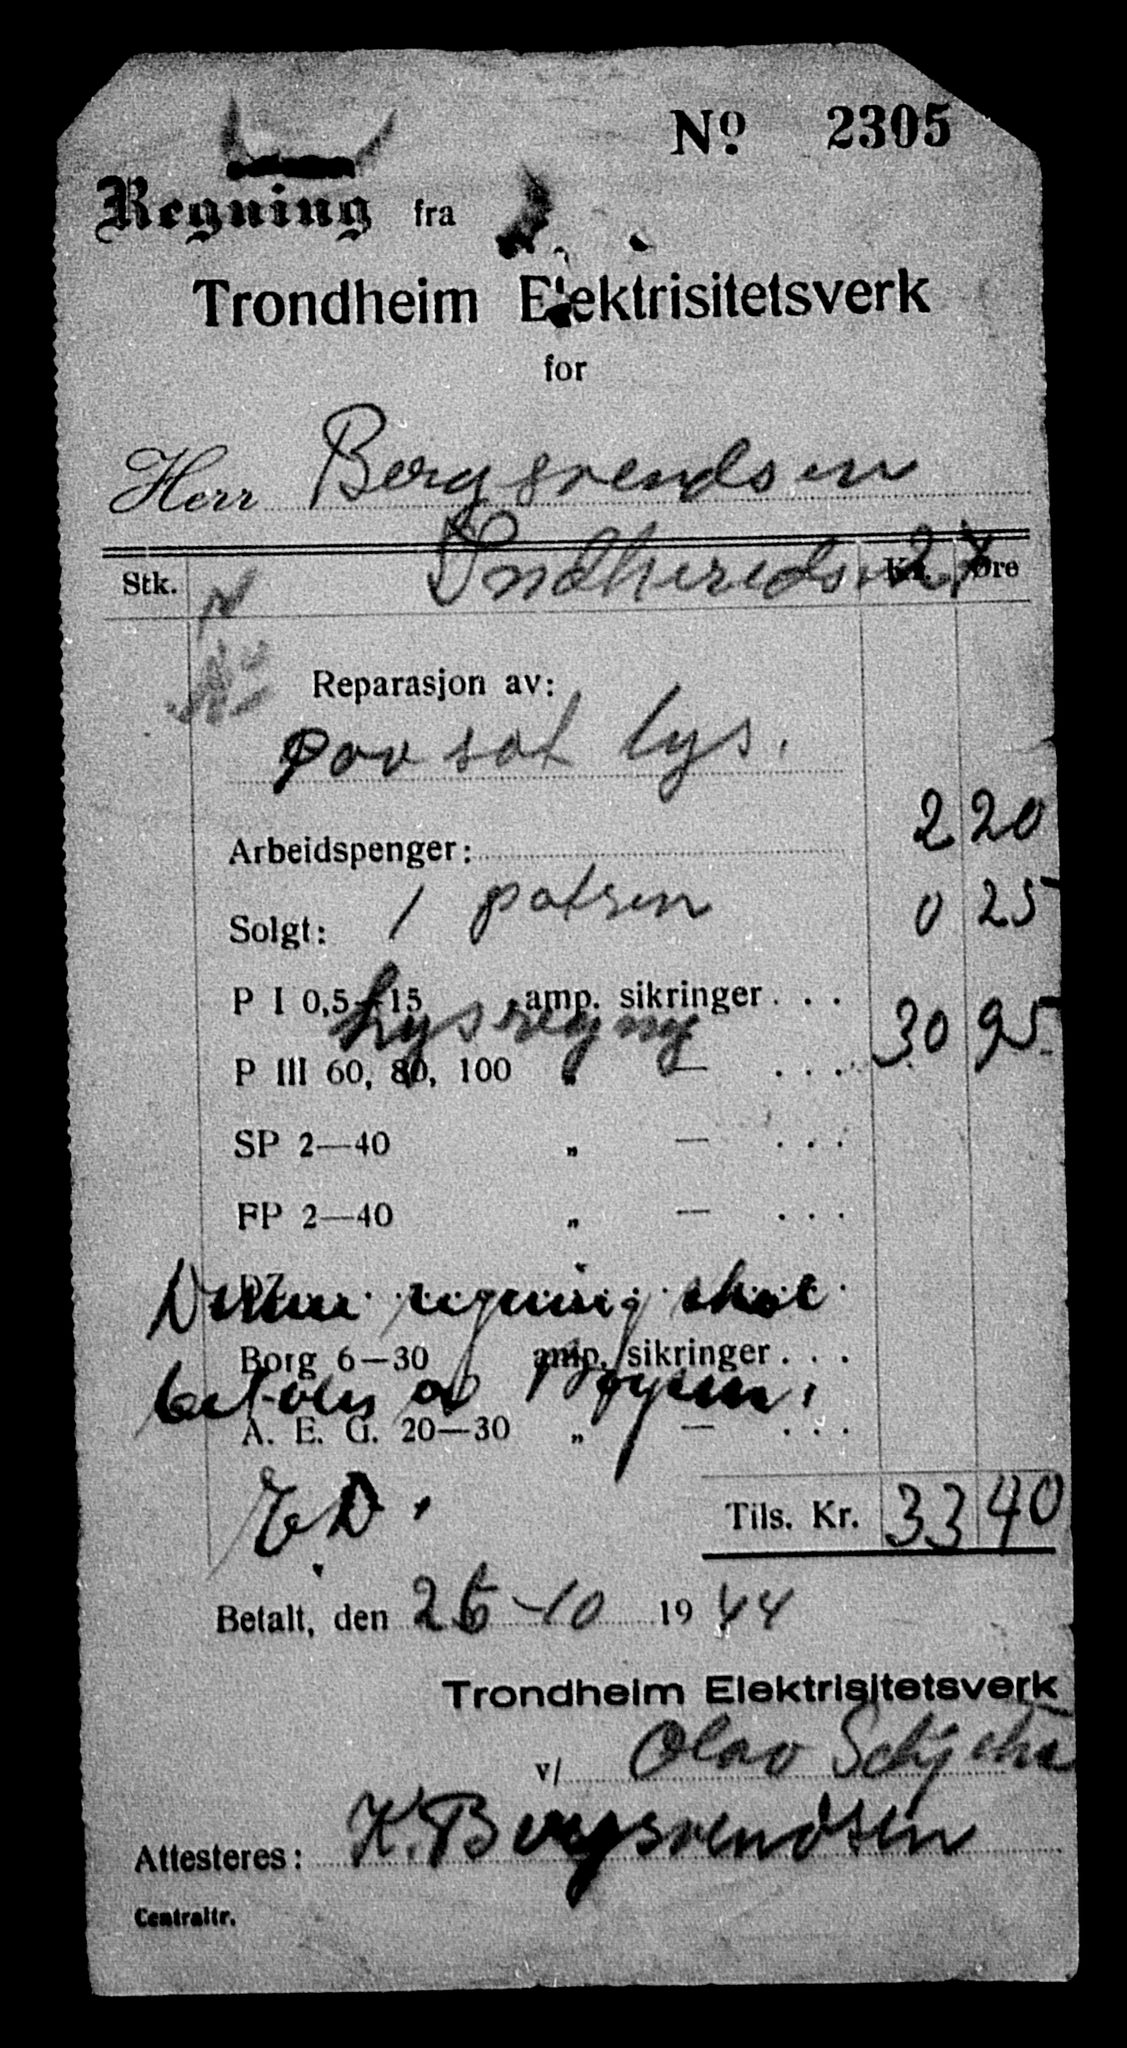 No 2305
Regning fra
Trondheim Elektrisitetsverk
for
Herr Bergsvendsen
Indhereds
Stk. Kr. Øre
Reparasjon av:
paa sat lys.
Arbeidspenger: 2 20
Solgt: 1 patren 0 25
P I 0,5-15 amp. sikringer . . .
Lysregng 30 95
P III 60, 80, 100 „ — . . .
SP 2—40 „ — . . .
FP 2—40 „ — . . .
DZ
Denne regning skal
Borg 6—30 amp. sikringer . . .
betales av Bøysen.
A. E. G. 20—30 „ — . . .
E.D.
Tils. Kr. 33 40
Betalt, den 26-10 1944
Trondheim Elektrisitetsverk
v/ Olav
Attesteres: K. Bergsvendsen
Centraltr.